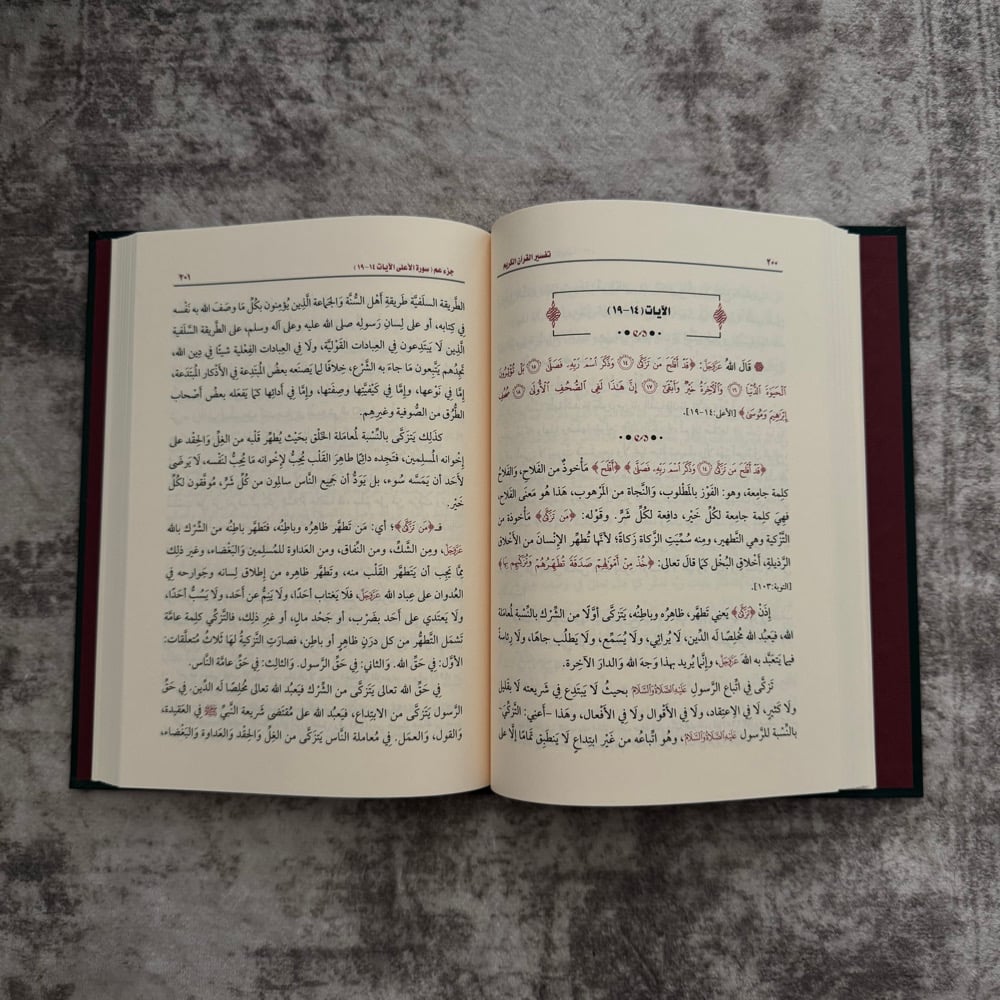 ٢٠٠
تفسير القرآن الكريم
الآيات (١٤-١٩)
قَالَ اللهُ عَزَّوَجَلَّ: ﴿قَدْ أَفْلَحَ مَن تَزَكَّىٰ ١٤ وَذَكَرَ ٱسْمَ رَبِّهِۦ فَصَلَّىٰ ١٥ بَلْ تُؤْثِرُونَ
ٱلْحَيَوٰةَ ٱلدُّنْيَا ١٦ وَٱلْءَاخِرَةُ خَيْرٌ وَأَبْقَىٰٓ ١٧ إِنَّ هَٰذَا لَفِى ٱلصُّحُفِ ٱلْأُولَىٰ ١٨ صُحُفِ
إِبْرَٰهِيمَ وَمُوسَىٰ﴾ [الأعلى: ١٤-١٩].
﴿قَدْ أَفْلَحَ مَن تَزَكَّىٰ ١٤ وَذَكَرَ ٱسْمَ رَبِّهِۦ فَصَلَّىٰ﴾ ﴿أَفْلَحَ﴾ مَأخوذٌ من الفَلَاحِ، وَالفَلاحُ
كلِمة جَامِعة، وهو: الفَوْزُ بالمَطْلوب، وَالنَّجاة من المَرْهوب، هَذا هُو مَعنَى الفَلاحِ،
فهِيَ كلِمة جَامعة لكُلِّ خَيْر، دافِعة لكُلِّ شَرٍّ. وقَوْله: ﴿مَن تَزَكَّىٰ﴾ مَأخوذة من
التَّزْكية وهي التَّطْهير، ومِنه سُمِّيَتِ الزَّكاة زَكاةً؛ لأنَّها تُطهِّر الإنْسانَ من الأَخْلاق
الرَّذيلةِ، أَخْلاقِ البُخْل كمَا قالَ تعالى: ﴿خُذْ مِنْ أَمْوَٰلِهِمْ صَدَقَةً تُطَهِّرُهُمْ وَتُزَكِّيهِم بِهَا﴾
[التوبة:١٠٣].
إِذَنْ ﴿تَزَكَّىٰ﴾ يَعني تَطهَّر، ظاهِرُه وباطِنُه، يَتَزكَّى أَوَّلًا من الشِّرْك بالنِّسْبة لمُعامَلة
الله، فيَعبُد الله مُخلِصًا لَه الدِّين، لَا يُرائِي، ولَا يُسَمِّع، ولَا يَطلُب جاهًا، ولَا رِئاسةً
فيما يَتعَبَّد به اللهَ عَزَّوَجَلَّ، وإنَّما يُريد بهذا وَجهَ الله وَالدارَ الآخِرة.
تَزكَّى في اتِّباع الرَّسولِ عَلَيْهِ الصَّلَاةُ وَالسَّلَامُ بحيثُ لَا يَبتَدِع في شَريعَته لَا بقَليل
ولَا كَثيرٍ، لَا في الاعتِقاد، ولَا في الأَقْوال ولَا في الأَفْعال، وهَذا -أَعني: التَّزكِّيَ-
بالنِّسْبة للرَّسول عَلَيْهِ الصَّلَاةُ وَالسَّلَامُ، وهُو اتِّباعُه من غَيْر ابتِداعٍ لَا يَنطَبِق تَمامًا إلَّا على
جزء عم (سورة الأعلى الآيات ١٤-١٩)
٢٠١
الطَّريقة السلَفيَّة طَريقةِ أَهْل السُّنَّة وَالجَماعة الَّذِين يُؤمِنون بكُلِّ مَا وصَفَ الله به نفْسه
في كِتابِه، أو على لِسانِ رَسولِه صلى الله عليه وعلى آله وسلم، على الطَّريقة السَّلَفية
الَّذين لَا يَبتَدِعون في العِبادات القَوْليَّة، ولَا في العِبادات الفِعْلية شيئًا في دِين الله،
تجِدُهم يَتَّبِعون مَا جاءَ به الشَّرْع، خِلافًا لما يَصنَعه بعضُ المُبتَدِعة في الأَذْكار المُبتَدَعة،
إمَّا في نَوْعها، وإمَّا في كَيْفيَّتِها وصِفَتها، وإمَّا في أدائِها كمَا يَفعَله بعضُ أَصْحاب
الطُّرُق من الصُّوفية وغيرِهِم.
كذَلِك يَتزَكَّى بالنِّسْبة لمُعامَلة الخَلْق بحَيْث يُطهِّر قَلْبه من الغِلِّ وَالحِقْد على
إِخْوانه المُسلِمين، فتَجِده دائِمًا طاهِرَ القَلْب يُحِبُّ لإِخْوانه مَا يُحِبُّ لنَفْسه، لَا يَرضَى
لأَحَد أن يَمَسَّه سُوء، بل يَوَدُّ أن جَميع الناس سالِمون من كُلِّ شَرٍّ، مُوفَّقون لكُلِّ
خَيْر.
فـ﴿مَن تَزَكَّىٰ﴾؛ أي: مَن تَطهَّر ظاهِرُه وباطِنُه، فتَطهَّر باطِنُه من الشِّرْك بالله
عَزَّوَجَلَّ، ومِن الشَّكِّ، ومن النِّفاق، ومن العَداوة للمُسلِمين وَالبَغْضاء، وغير ذلك
مِمَّا يَجِب أن يَتطَهَّر القَلْب منه، وتَطهَّر ظاهِره من إطلاق لِسانه وجَوارِحه في
العُدوان على عِباد الله عَزَّوَجَلَّ، فلَا يَغتاب أحَدًا، ولَا يَنِمُّ عن أَحَد، ولَا يَسُبُّ أحَدًا،
ولَا يَعتَدِي على أَحَد بضَرْب، أو جَحْد مالٍ، أو غيرِ ذلِك، فالتَّزكِّي كلِمة عامَّة
تَشمَل التَّطهُّر من كل درَنٍ ظاهِر أو باطِنٍ، فصارَتِ التَّزكيةُ لها ثَلاثُ مُتعلَّقات:
الأوَّل: في حَقِّ الله. وَالثاني: في حَقِّ الرَّسول. وَالثالِث: في حَقِّ عامَّة الناس.
في حَقِّ الله تعالى يَتَزكَّى من الشِّرْك فيَعبُد الله تعالى مُخلِصًا لَه الدِّين. في حَقِّ
الرَّسول يَتَزكَّى من الابتِداع، فيَعبُد الله على مُقتَضى شَريعة النَّبيِّ ﷺ في العَقيدة،
وَالقَول، وَالعمَل. في مُعاملة الناس يَتَزكَّى من الغِلِّ وَالحِقْد وَالعَداوة وَالبَغْضاء،